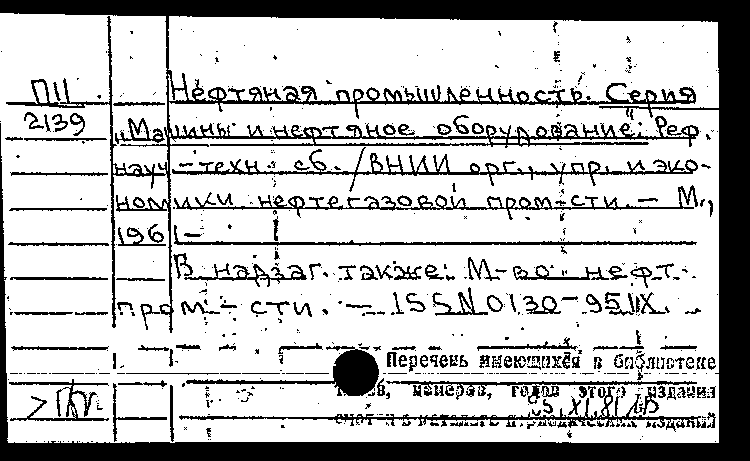 П11 Нефтяная промышленность. Серия
2139 „Машины и нефтяное оборудование": Реф.
науч-техн. сб. /ВНИИ орг., упр. и эко-
номики нефтегазовой пром-сти. — М.,
1961—
В надзаг. также: М-во нефт.
пром-сти. — ISSN 0130-951X.
Перечень имеющихся в библиотеке
номеров, годов этого издания
в каталоге периодических изданий